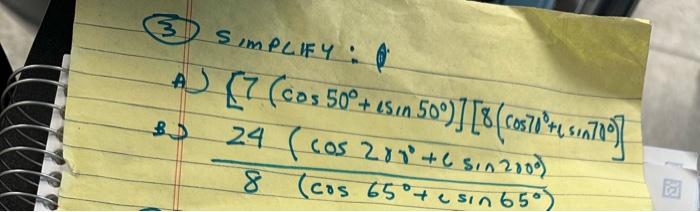 ③ SIMPLIFY:
A) [7 (cos 50° + i sin 50°)] [8 (cos 70° + i sin 70°)]
B) 24 (cos 200° + i sin 200°)
8 (cos 65° + i sin 65°)